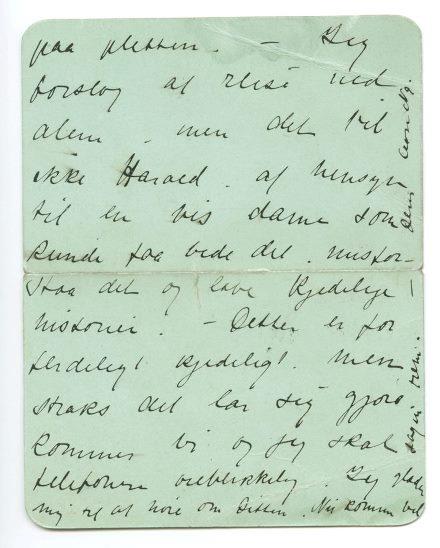 paa pletten. — Jeg
forslog at reise ned
alene, men det vil
ikke Harald. af hensyn
til en vis dame som
kunde faa vide det. misfor-
staa det og lave kjedelige
historier. — Dette er for-
ferdeligt kjedeligt. Men
straks det lar sig gjøre
kommer vi og jeg skal
telefonere øieblikkelig. Jeg glæder
mig til at høre om Sitten. Nu kommer vel